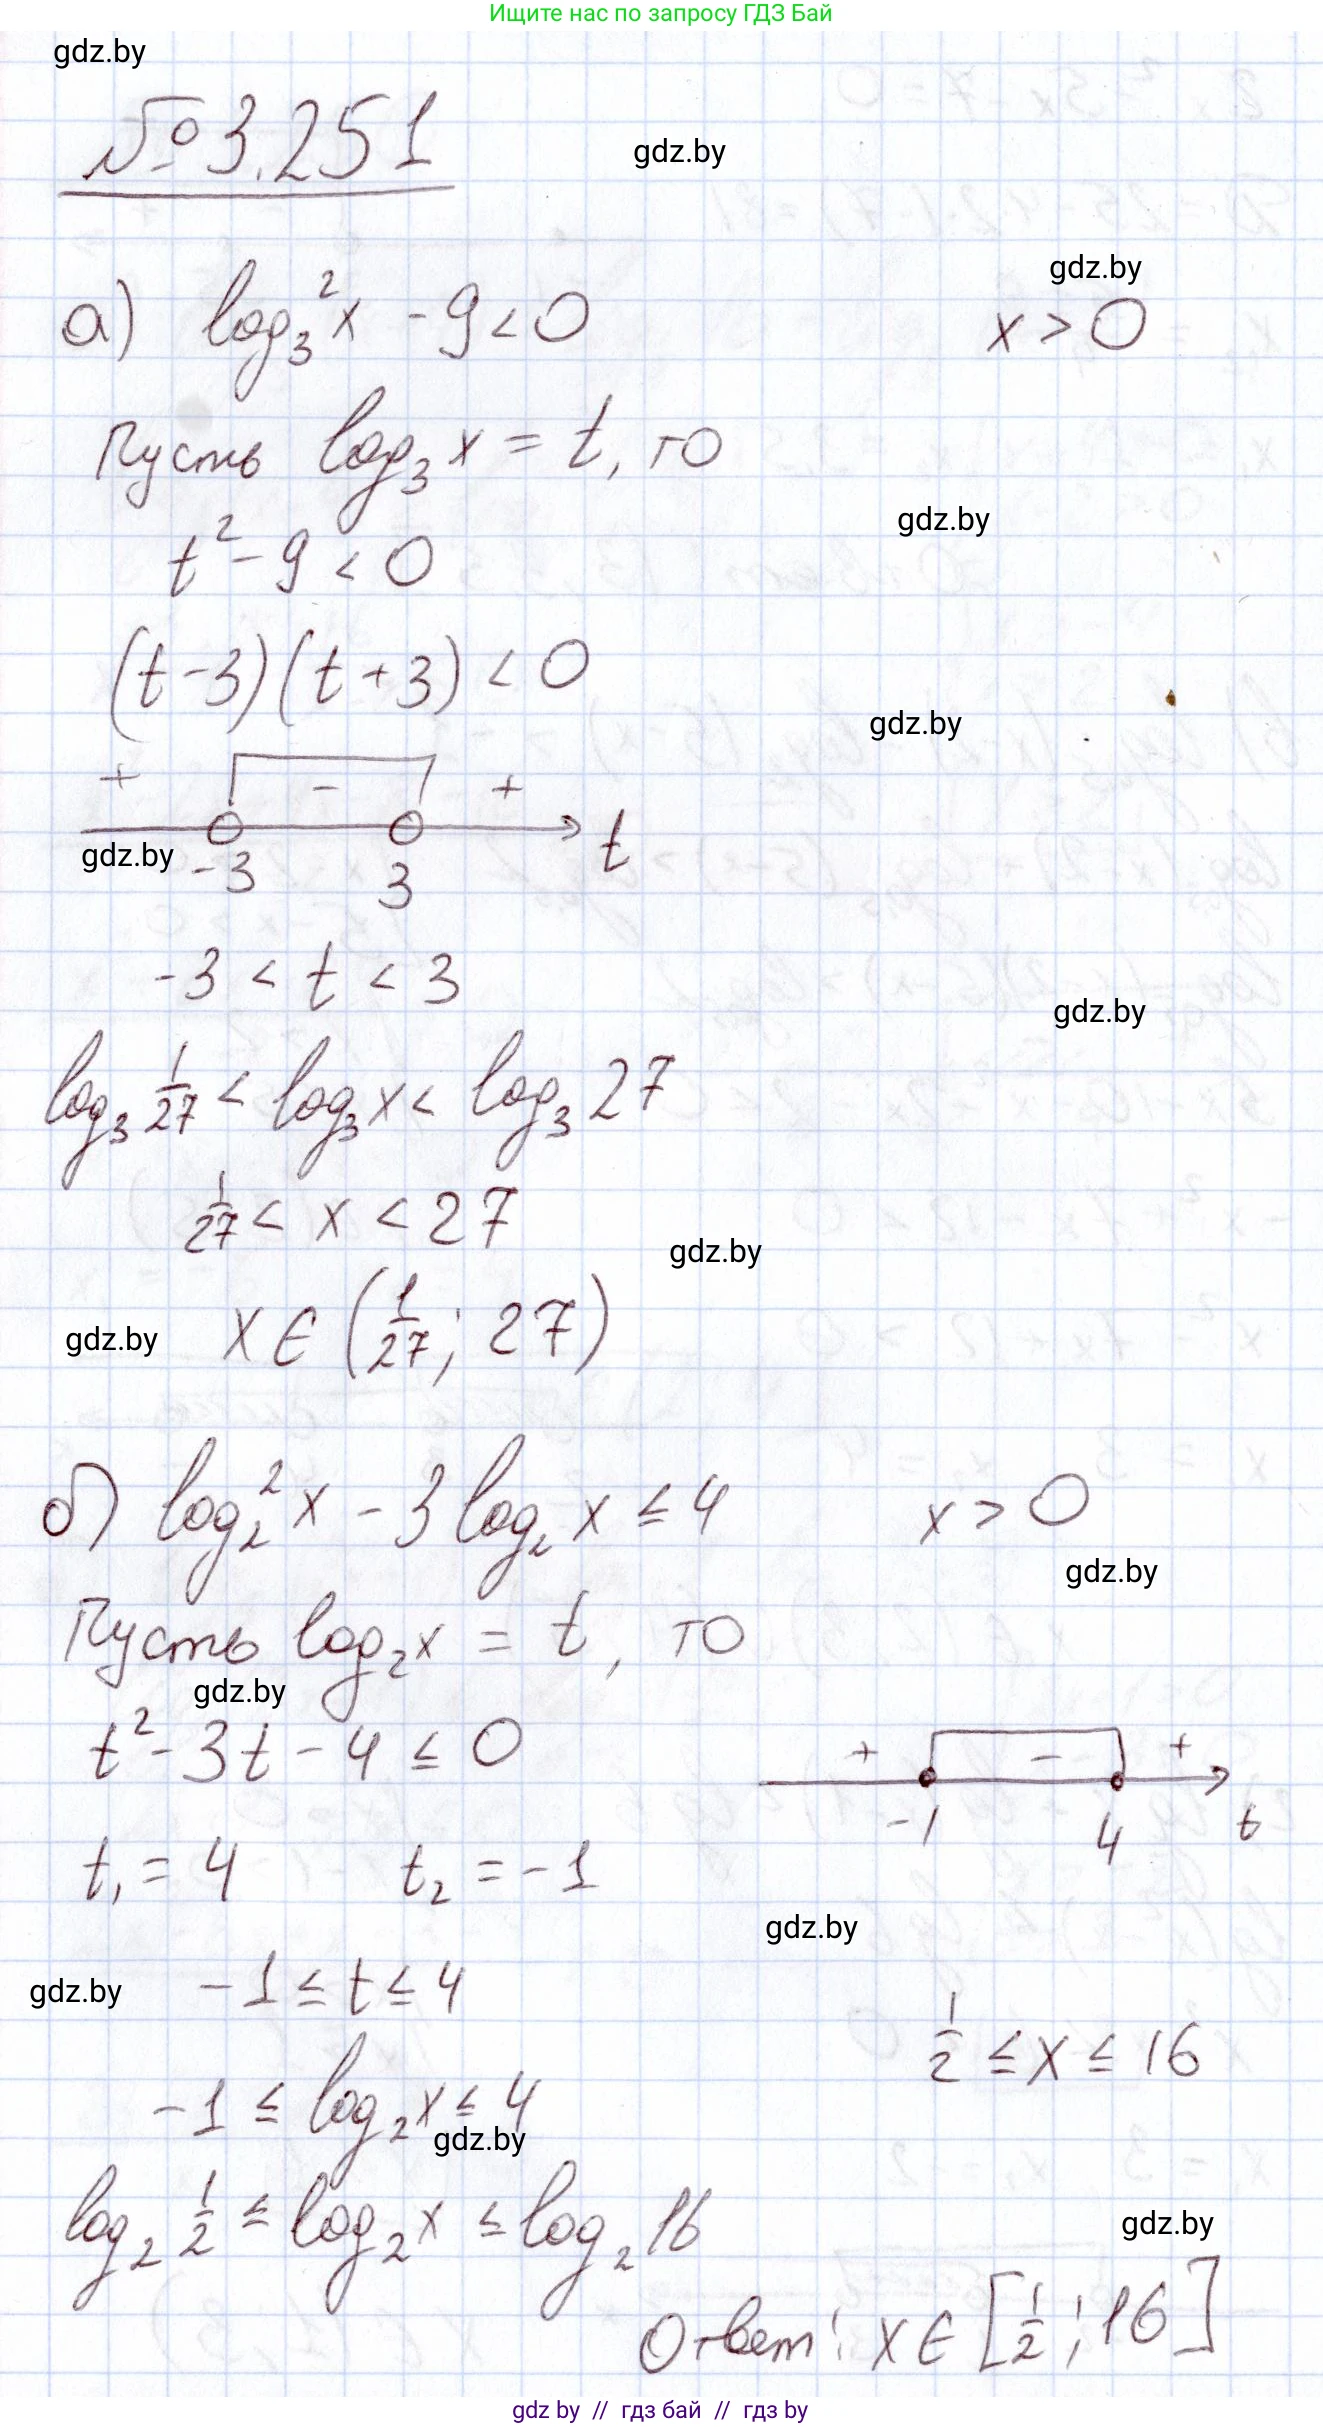 Ищите нас по запросу ГДЗ Бай
gdz.by
№ 3.251
gdz.by
gdz.by
а) log₃² x - 9 < 0
x > 0
Пусть log₃ x = t, то
gdz.by
t² - 9 < 0
(t - 3)(t + 3) < 0
gdz.by
+ - +
-3 3 t
gdz.by
-3 < t < 3
gdz.by
log₃ 1/27 < log₃ x < log₃ 27
1/27 < x < 27
gdz.by
gdz.by
x ∈ (1/27; 27)
б) log₂² x - 3 log₂ x ≤ 4
x > 0
gdz.by
Пусть log₂ x = t, то
gdz.by
t² - 3t - 4 ≤ 0
+ - +
-1 4 t
t₁ = 4 t₂ = -1
gdz.by
gdz.by
-1 ≤ t ≤ 4
1/2 ≤ x ≤ 16
-1 ≤ log₂ x ≤ 4
gdz.by
log₂ 1/2 ≤ log₂ x ≤ log₂ 16
gdz.by
Ответ: x ∈ [1/2; 16]
gdz by // гдз бай // гдз by